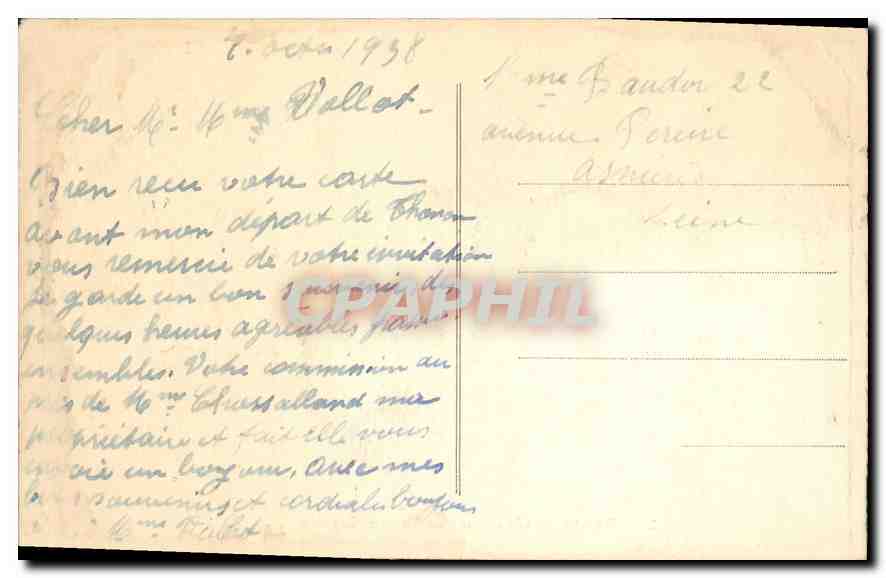 7. octu 1938
Cher Mr Mme Vollot
Bien reçu votre carte
avant mon départ de Thonon
vous remercie de votre invitation
Je garde un bon souvenir des
quelques heures agréables
ensembles. Votre commission au
près de Mme Chossalland ma
propriétaire et fait elle vous
envoie un bonjour, avec mes
souvenirs et cordiales bonjours
Mme
Mme Baudor 22
avenue Pereire
Asnières
Seine
GRAPHIL